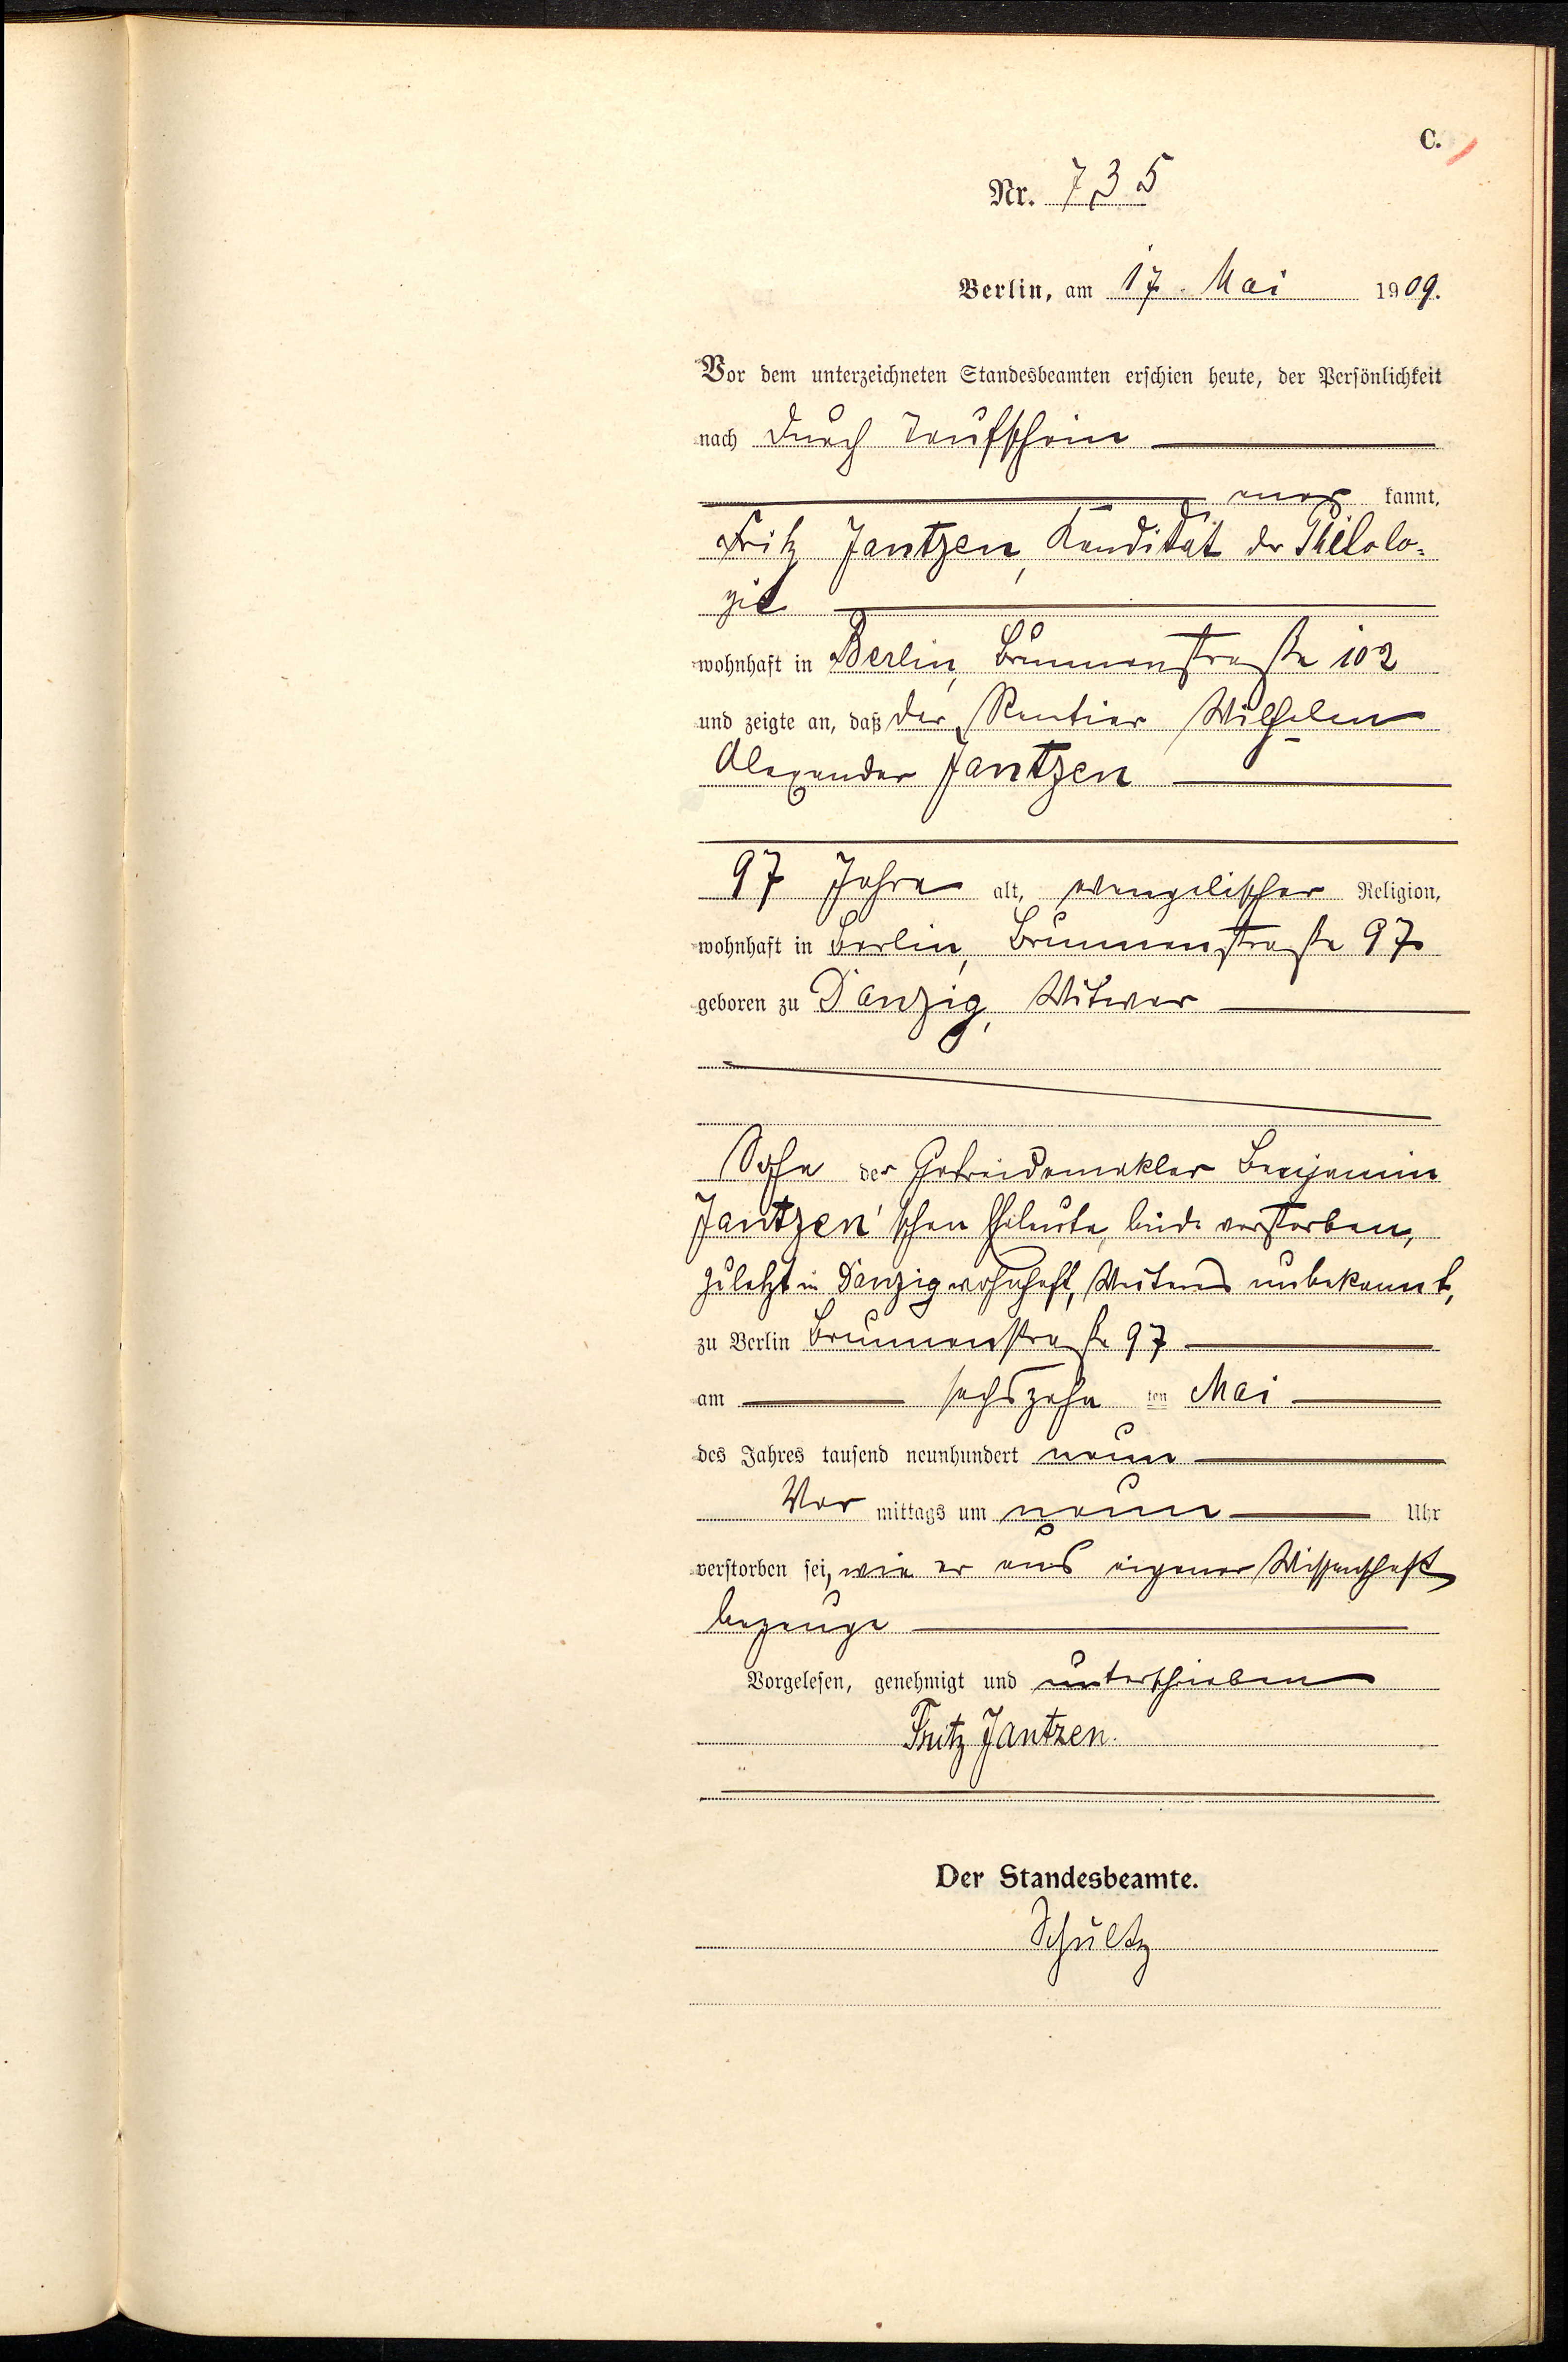 C.
Nr. 735
Berlin, am 17. Mai 1909.
Vor dem unterzeichneten Standesbeamten erschien heute, der Persönlichkeit
nach durch Taufschein
aner kannt,
Fritz Jantzen, Kandidat der Philolo-
gie
wohnhaft in Berlin, Brunnenstraße 102
und zeigte an, daß der Rentier Wilhelm
Alexander Jantzen
97 Jahre alt, evangelischer Religion,
wohnhaft in Berlin, Brunnenstraße 97
geboren zu Danzig, Witwer
Sohn der Getreidemakler Benjamin
Jantzen'schen Eheleute, beide verstorben,
zuletzt in Danzig wohnhaft, Weiteres unbekannt,
zu Berlin Brunnenstraße 97
am sechszehn ten Mai
des Jahres tausend neunhundert neun
Vor mittags um neun Uhr
verstorben sei, wie er aus eigener Wissenschaft
bezeuge
Vorgelesen, genehmigt und unterschrieben
Fritz Jantzen.
Der Standesbeamte.
Schultz